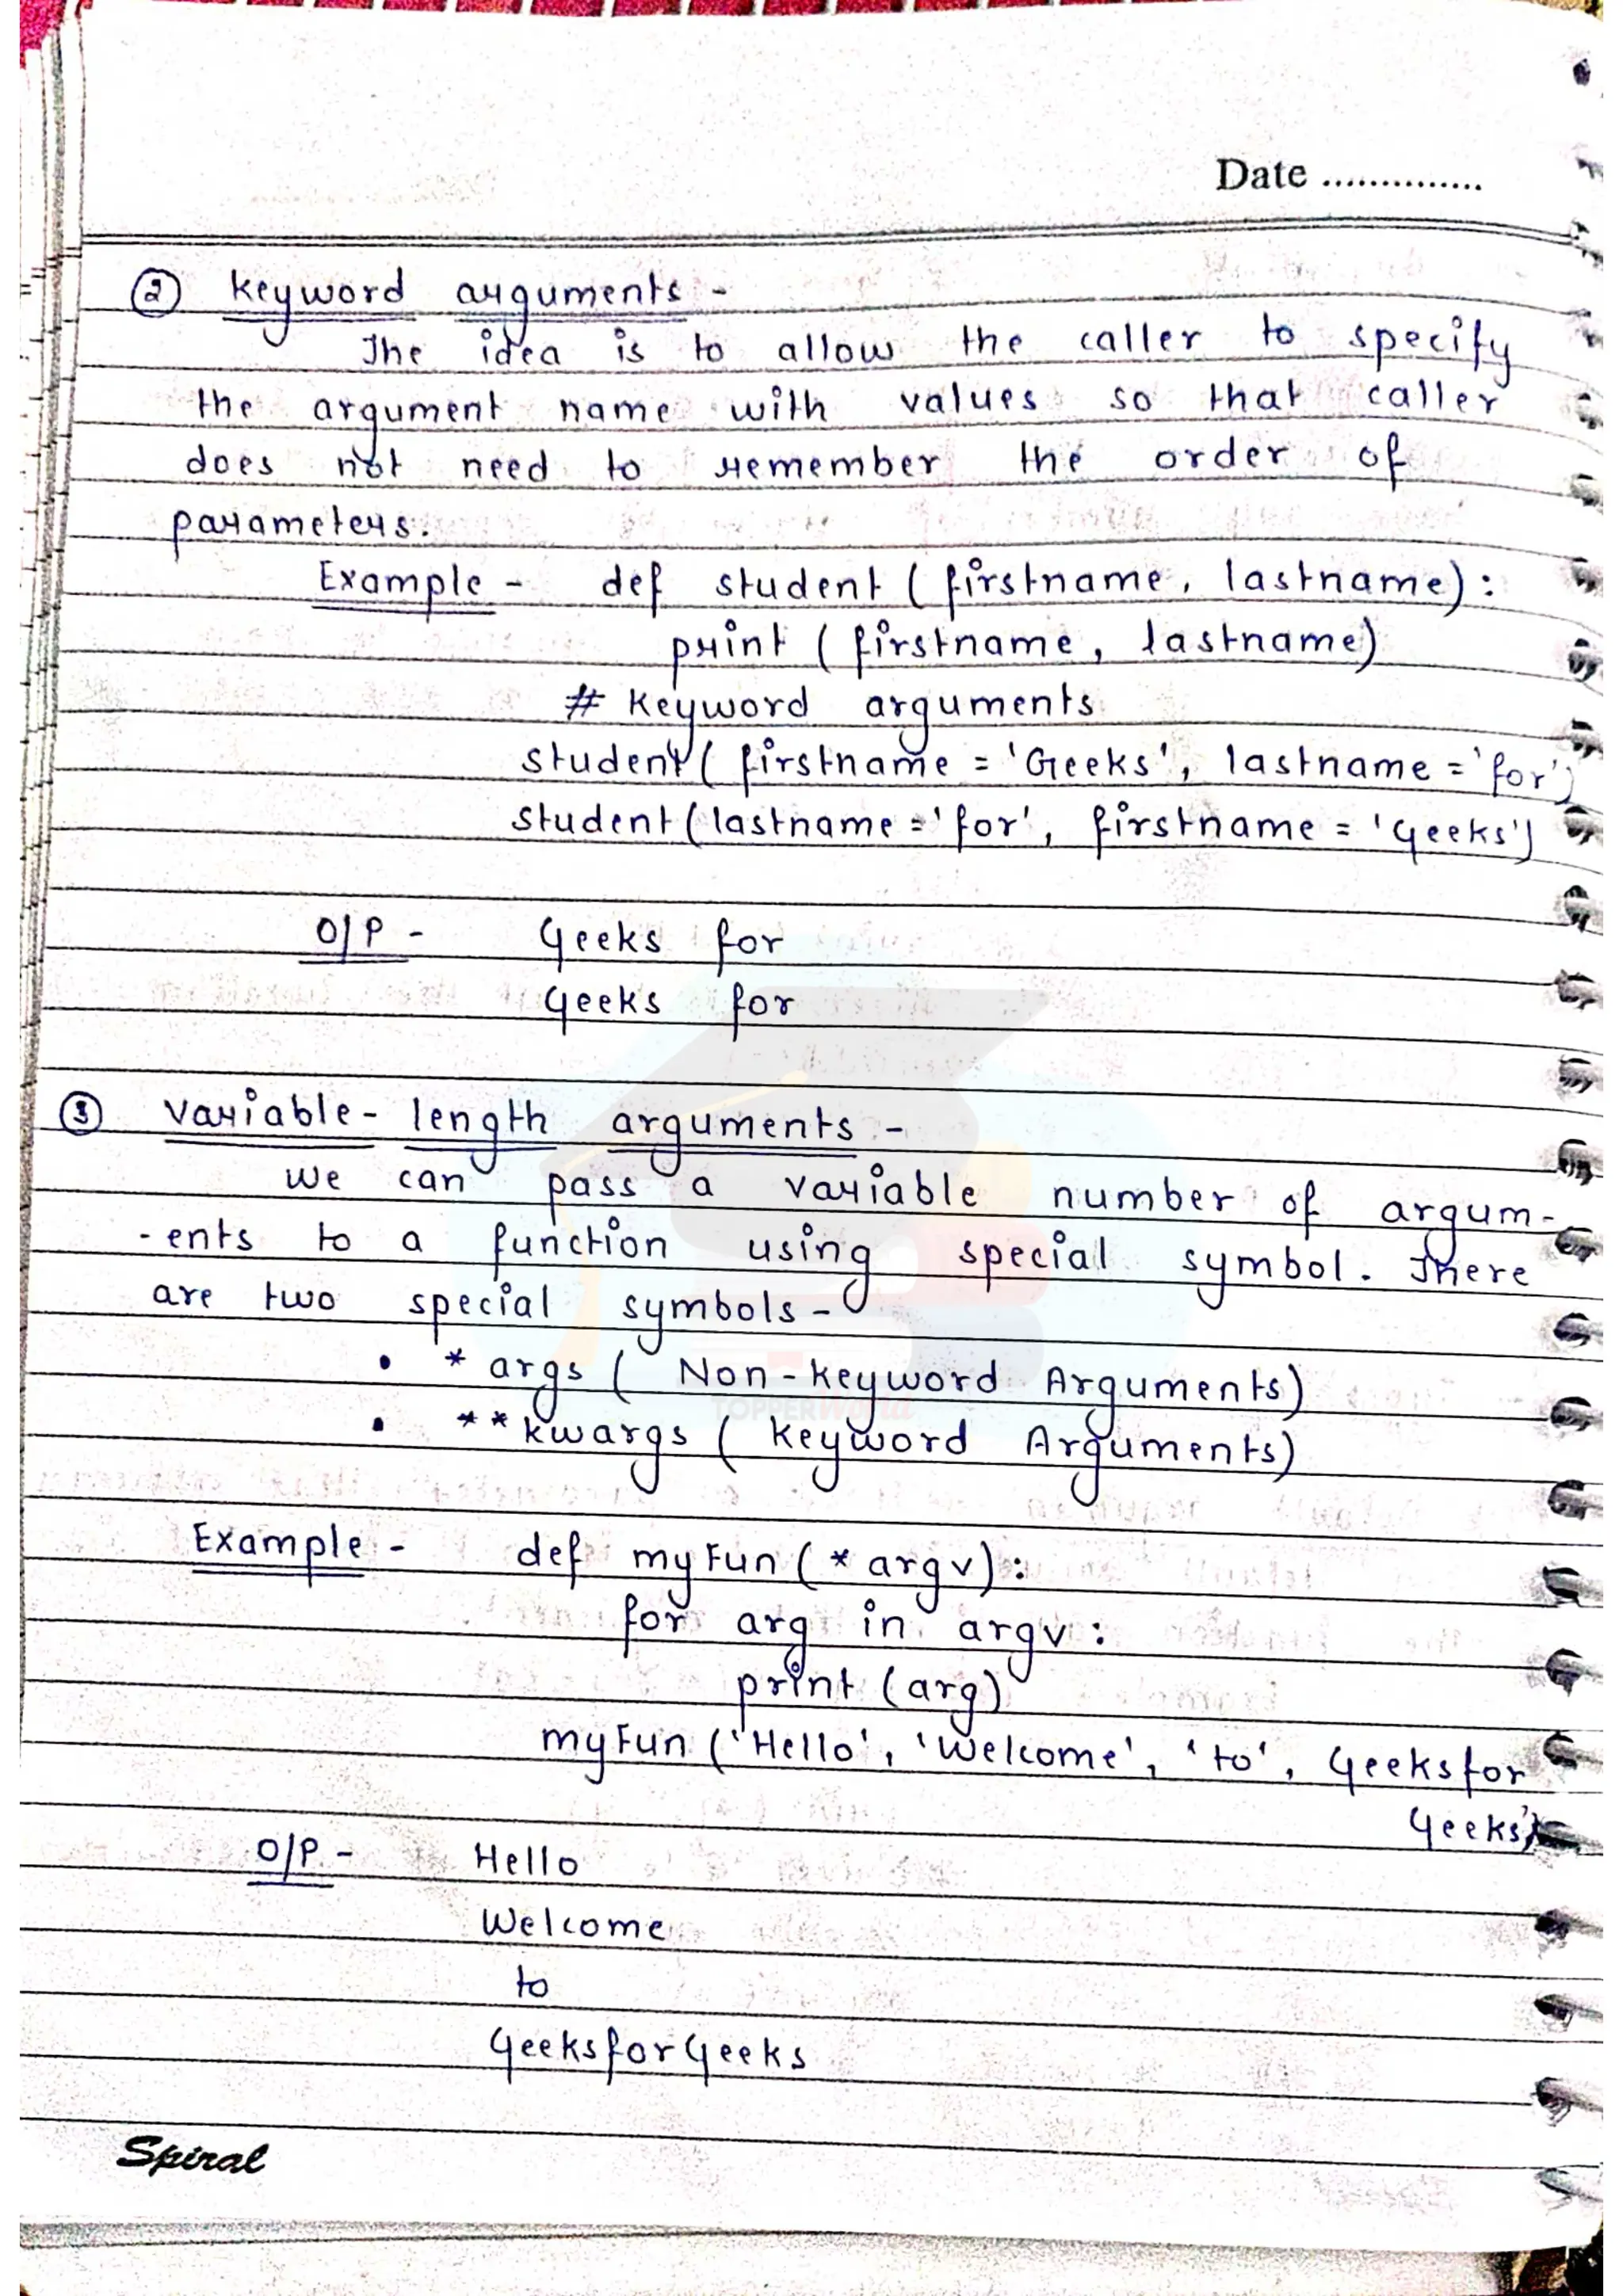 Date ..............
② Keyword arguments -
The idea is to allow the caller to specify
the argument name with values so that caller
does not need to remember the order of
parameters.
Example - def student ( firstname, lastname) :
print ( firstname, lastname)
# Keyword arguments
student ( firstname = 'Geeks', lastname = 'for')
student ( lastname = 'for', firstname = 'Geeks')
O/P - Geeks for
Geeks for
③ Variable - length arguments -
We can pass a variable number of argum-
- ents to a function using special symbol. There
are two special symbols -
• * args ( Non - Keyword Arguments)
• ** kwargs ( Keyword Arguments)
TOPPERWorld
Example - def myFun ( * argv) :
for arg in argv :
print (arg)
myFun ('Hello', 'Welcome', 'to', Geeksfor
Geeks')
O/P - Hello
Welcome
to
GeeksforGeeks
Spiral